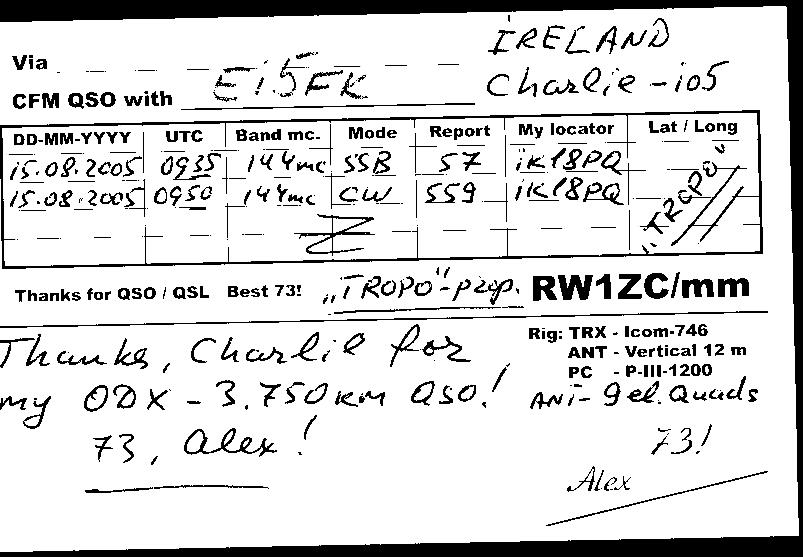 IRELAND
Via
CFM QSO with Ei5FK Charlie - io5
DD-MM-YYYY UTC Band mc. Mode Report My locator Lat / Long
15.08.2005 0935 144mc SSB 57 iK18PQ „TROPO“
15.08.2005 0950 144mc CW 559 iK18PQ
Thanks for QSO / QSL Best 73! „TROPO“-prop. RW1ZC/mm
Rig: TRX - Icom-746
ANT - Vertical 12 m
PC - P-III-1200
ANT- 9el. Quads
73!
Alex
Thanks, Charlie for
my ODX - 3.750km QSO!
73, Alex!